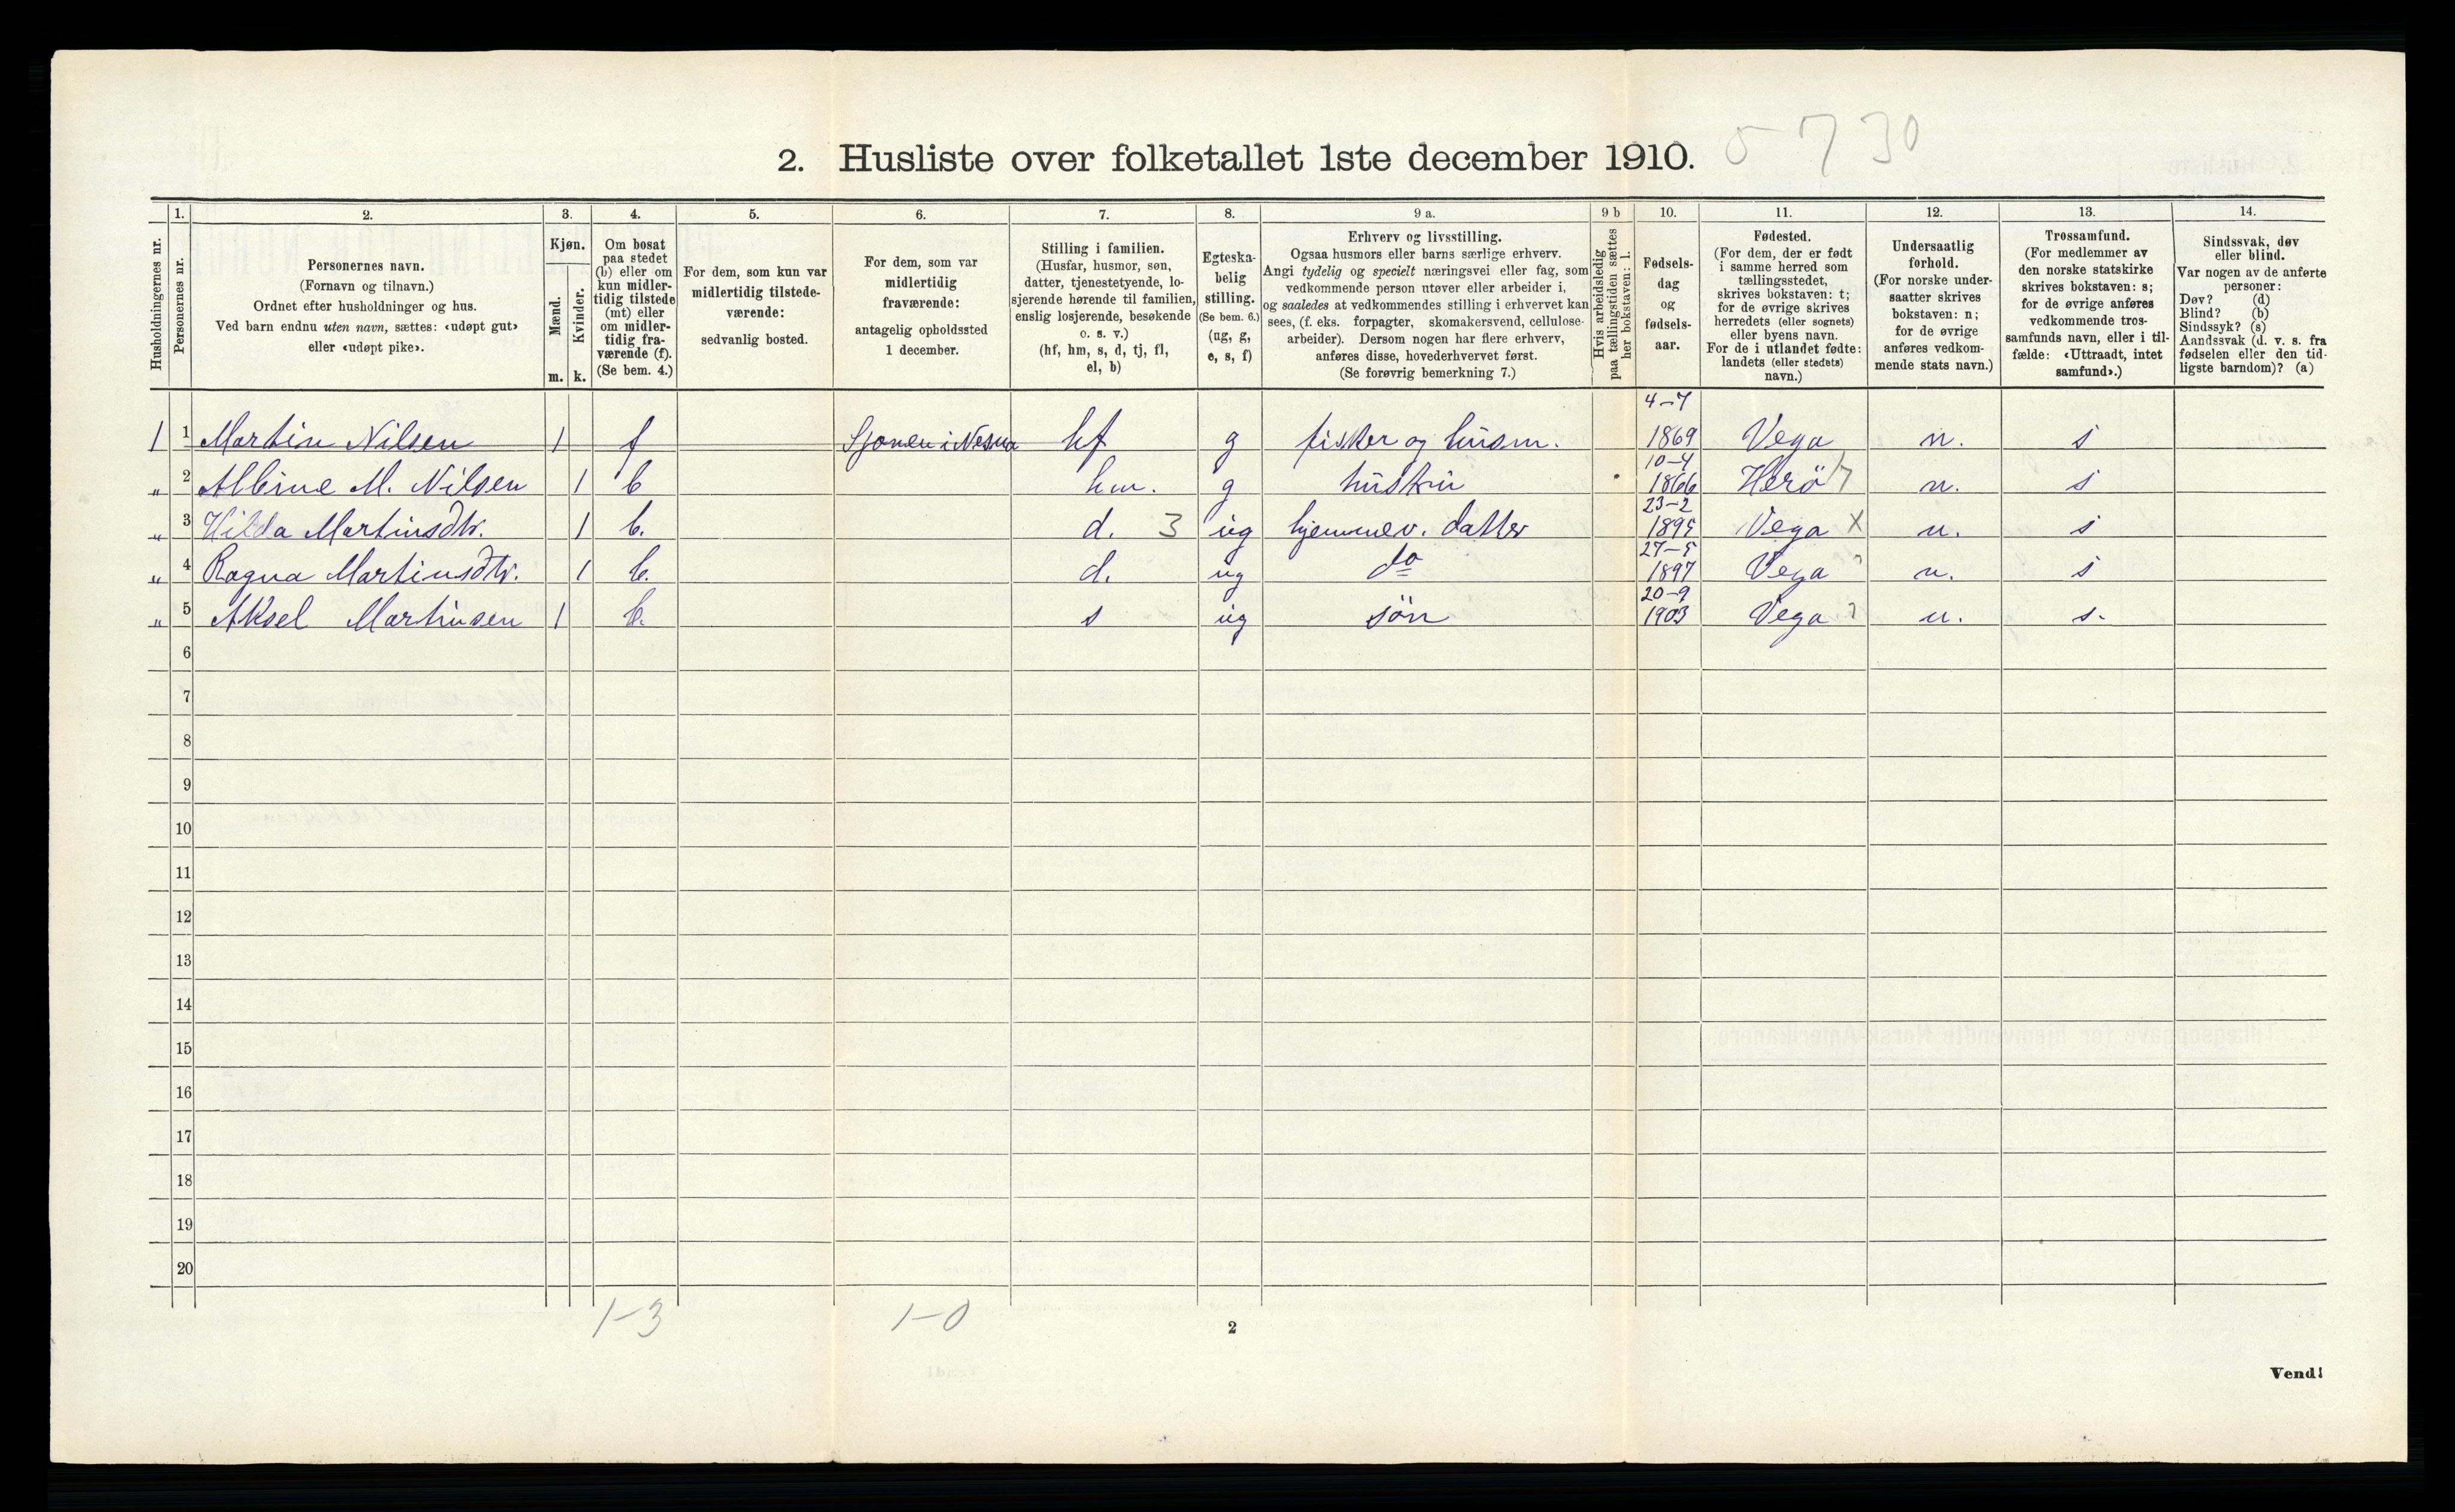 2. Husliste over folketallet 1ste december 1910. 5 7 30
Husholdningernes nr.
1. Personernes nr.
2.
Personernes navn.
(Fornavn og tilnavn.)
Ordnet efter husholdninger og hus.
Ved barn endnu uten navn, sættes: «udøpt gut»
eller «udøpt pike».
3.
Kjøn.
Mænd. Kvinder.
m. k.
4.
Om bosat
paa stedet
(b) eller om
kun midler-
tidig tilstede
(mt) eller
om midler-
tidig fra-
værende (f).
(Se bem. 4.)
5.
For dem, som kun var
midlertidig tilstede-
værende:
sedvanlig bosted.
6.
For dem, som var
midlertidig
fraværende:
antagelig opholdssted
1 december.
7.
Stilling i familien.
(Husfar, husmor, søn,
datter, tjenestetyende, lo-
sjerende hørende til familien,
enslig losjerende, besøkende
o. s. v.)
(hf, hm, s, d, tj, fl,
el, b)
8.
Egteska-
belig
stilling.
(Se bem. 6.)
(ug, g,
e, s, f)
9 a.
Erhverv og livsstilling.
Ogsaa husmors eller barns særlige erhverv.
Angi tydelig og specielt næringsvei eller fag, som
vedkommende person utøver eller arbeider i,
og saaledes at vedkommendes stilling i erhvervet kan
sees, (f. eks. forpagter, skomakersvend, cellulose-
arbeider). Dersom nogen har flere erhverv,
anføres disse, hovederhvervet først.
(Se forøvrig bemerkning 7.)
9 b
Hvis arbeidsledig
paa tællingstiden sættes
her bokstaven: l.
10.
Fødsels-
dag
og
fødsels-
aar.
11.
Fødested.
(For dem, der er født
i samme herred som
tællingsstedet,
skrives bokstaven: t;
for de øvrige skrives
herredets (eller sognets)
eller byens navn.
For de i utlandet fødte:
landets (eller stedets)
navn.)
12.
Undersaatlig
forhold.
(For norske under-
saatter skrives
bokstaven: n;
for de øvrige
anføres vedkom-
mende stats navn.)
13.
Trossamfund.
(For medlemmer av
den norske statskirke
skrives bokstaven: s;
for de øvrige anføres
vedkommende tros-
samfunds navn, eller i til-
fælde: «Uttraadt, intet
samfund».)
14.
Sindssvak, døv
eller blind.
Var nogen av de anførte
personer:
Døv? (d)
Blind? (b)
Sindssyk? (s)
Aandssvak (d. v. s. fra
fødselen eller den tid-
ligste barndom)? (a)
1 1 Martin Nilsen 1 f Sjonen i Nesna hf g fisker og husm. 4-7 1869 Vega n. s
" 2 Albine M. Nilsen 1 b hm. g hustru 10-4 1866 Herö 7 n. s
" 3 Hilda Martinsdtr. 1 b. d. 3 ug hjemmev. datter 23-2 1895 Vega X n. s
" 4 Ragna Martinsdtr. 1 b. d. ug do 27-5 1897 Vega n. s
" 5 Aksel Martinsen 1 b. s ug sön 20-9 1903 Vega n. s.
6
7
8
9
10
11
12
13
14
15
16
17
18
19
20
1-3 1-0
2
Vend!